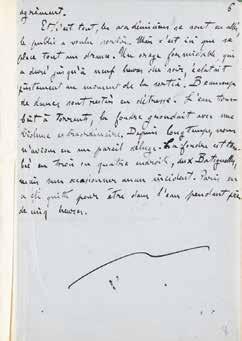 6
agrément.
Et, c'est tout, les académiciens se sont en allés,
le public a voulu sortir. Mais c'est ici que se
place tout un drame. Un orage formidable qui
a duré jusqu'à neuf heures du soir, éclatait
justement au moment de la sortie. Beaucoup
de dames sont restées en détresse. L'eau tom-
bait à torrent, la foudre grondait avec une
violence extraordinaire. Depuis longtemps, nous
n'avions eu un pareil déluge. La foudre est tom-
bée en trois ou quatre endroits, aux Batignolles,
mais sans occasionner aucun accident. Paris en
a été quitte pour être dans l'eau pendant près
de cinq heures.
8